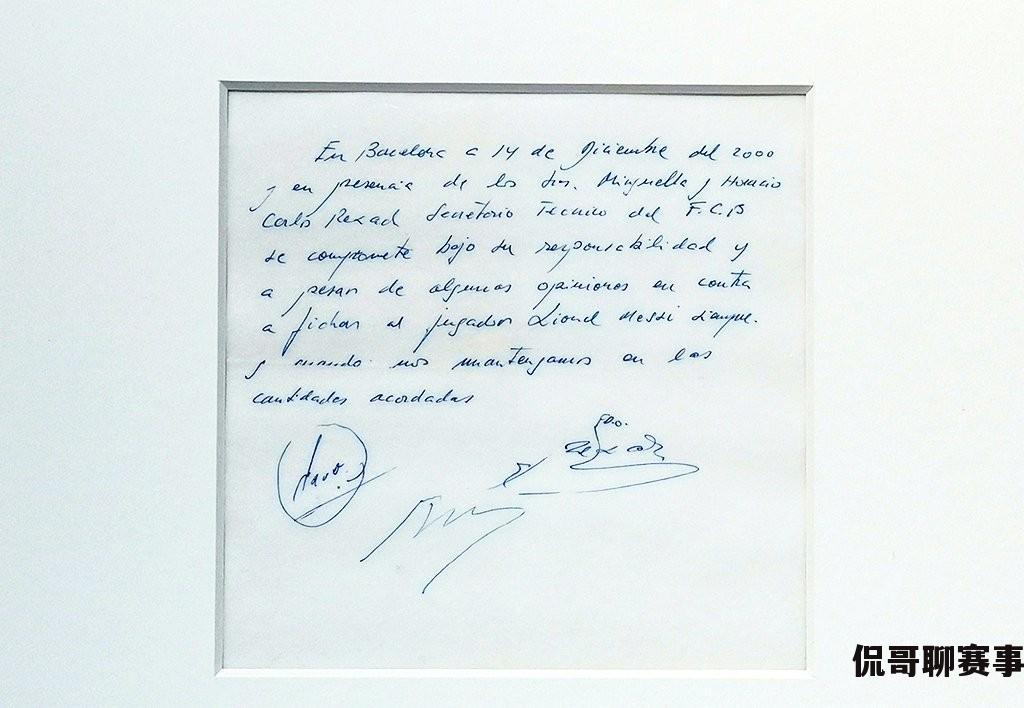 En Barcelona a 14 de Diciembre del 2000
y en presencia de los Sres. Minguella y Horacio
Carlos Rexach Secretario Tecnico del F.C.B
se compromete bajo su responsabilidad y
a pesar de algunas opiniones en contra
a fichar al jugador Lionel Messi siempre
y cuando nos mantengamos en las
cantidades acordadas
侃哥聊赛事